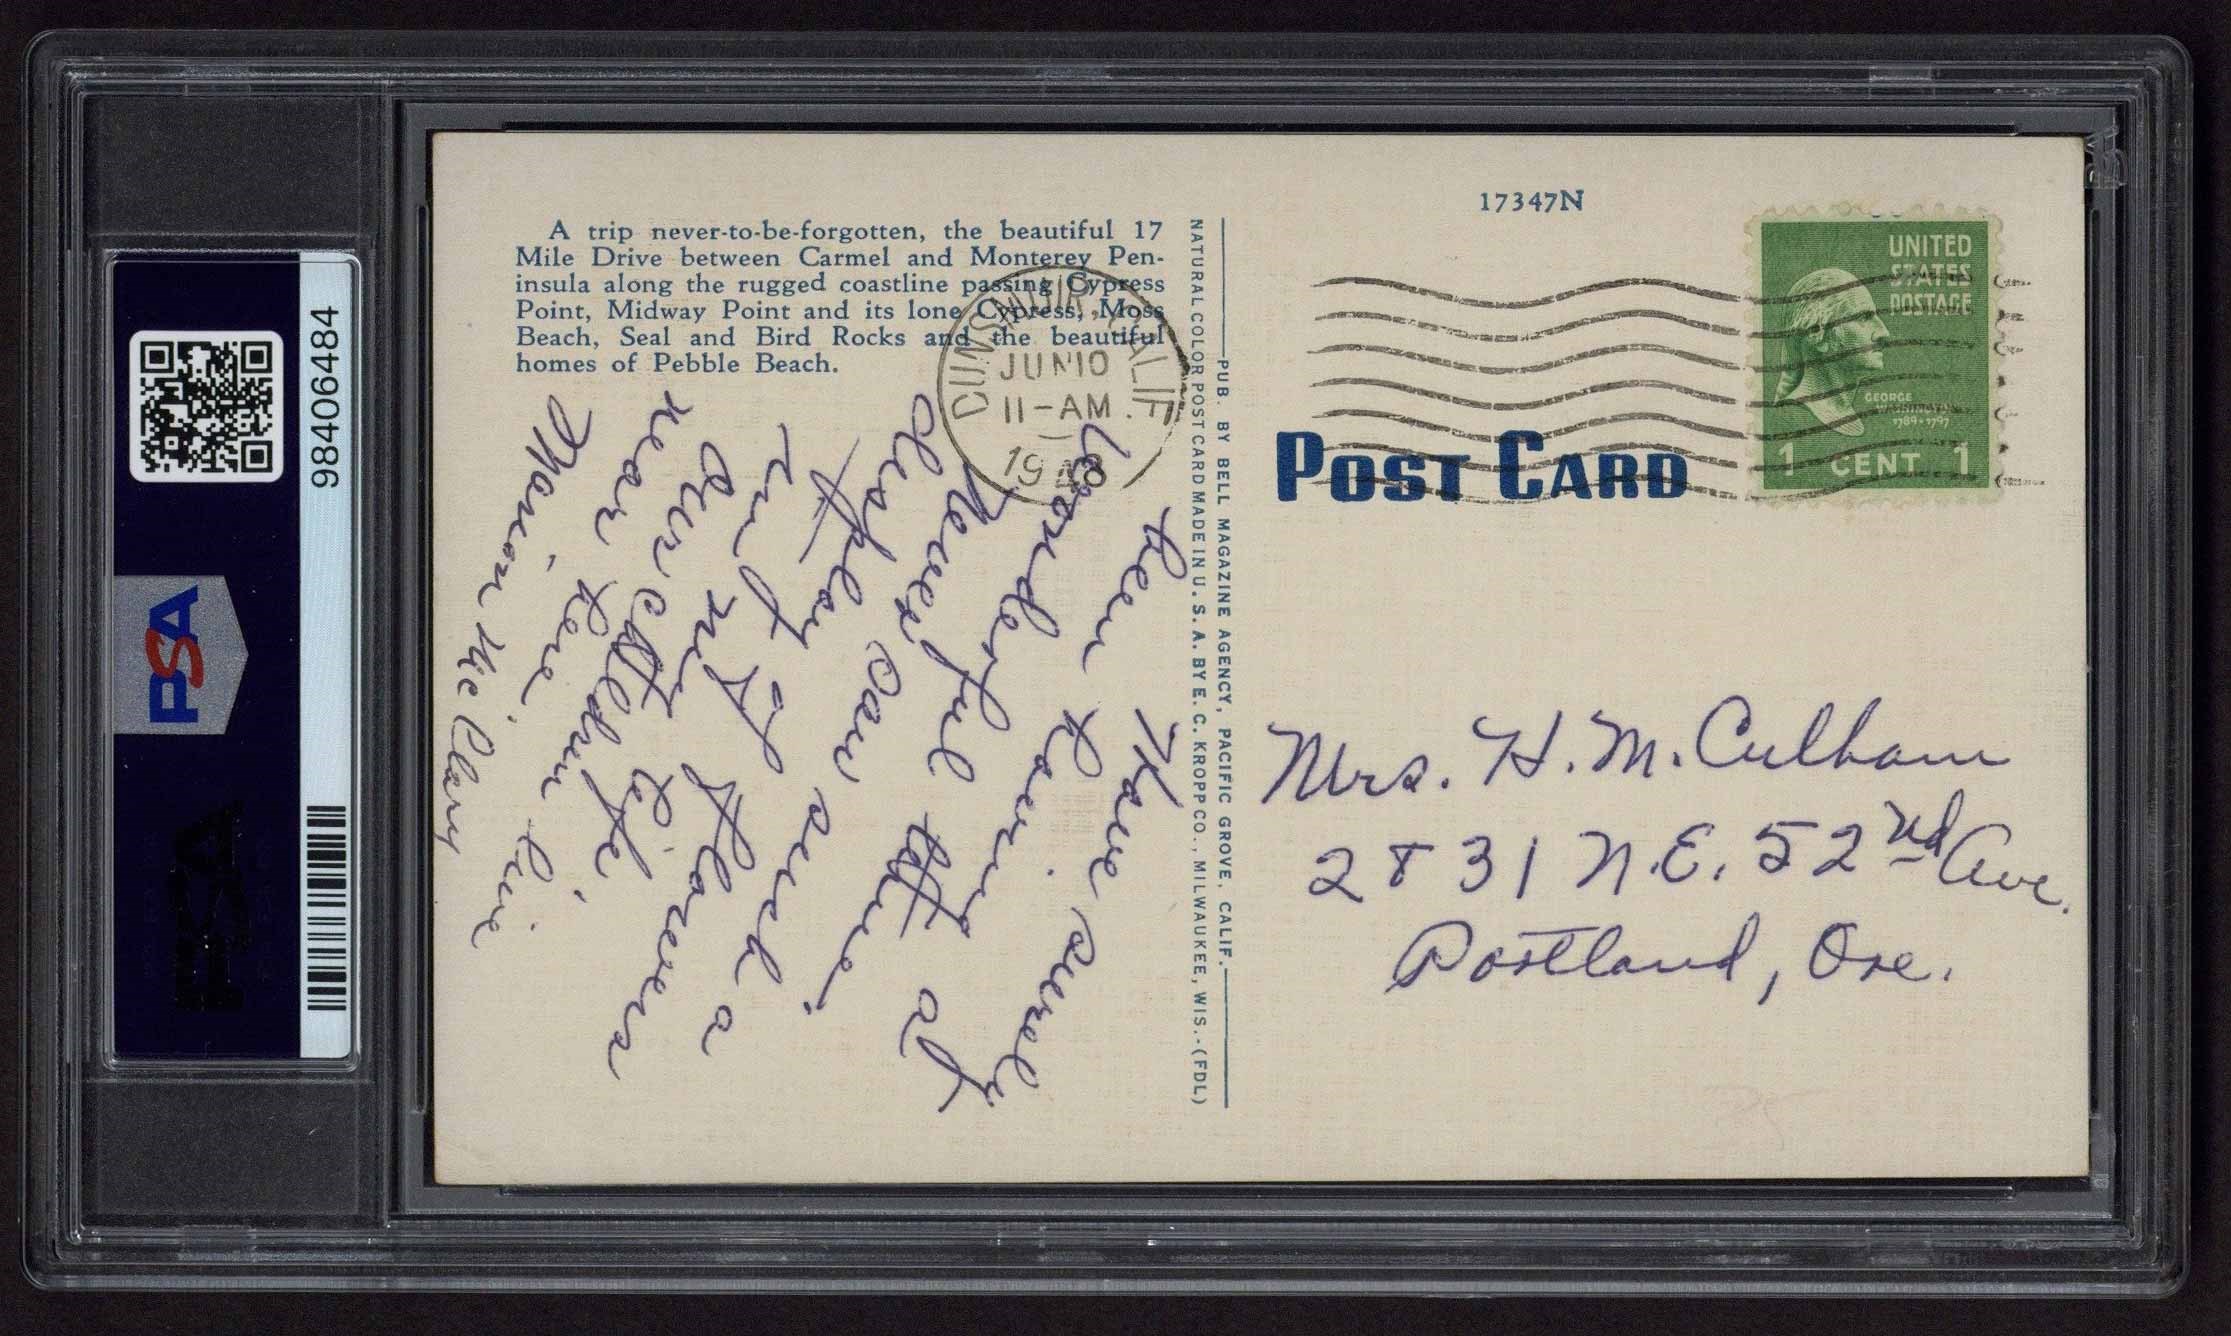 98406484
PSA
A trip never-to-be-forgotten, the beautiful 17
Mile Drive between Carmel and Monterey Pen-
insula along the rugged coastline passing Cypress
Point, Midway Point and its lone Cypress, Moss
Beach, Seal and Bird Rocks and the beautiful
homes of Pebble Beach.
DUNSMUIR, CALIF.
JUN 10
11-AM
1948
Have surely
been having
wonderful time.
Never saw such a
display of flowers
in my life.
Our children live
near here.
Marian McClary
PUB. BY BELL MAGAZINE AGENCY, PACIFIC GROVE, CALIF.
NATURAL COLOR POST CARD MADE IN U. S. A. BY E. C. KROPP CO., MILWAUKEE, WIS.-(FDL)
17347N
UNITED
STATES
POSTAGE
GEORGE
WASHINGTON
1789-1797
1 CENT 1
POST CARD
Mrs. H. M. Culham
2831 N.E. 52nd Ave.
Portland, Ore.